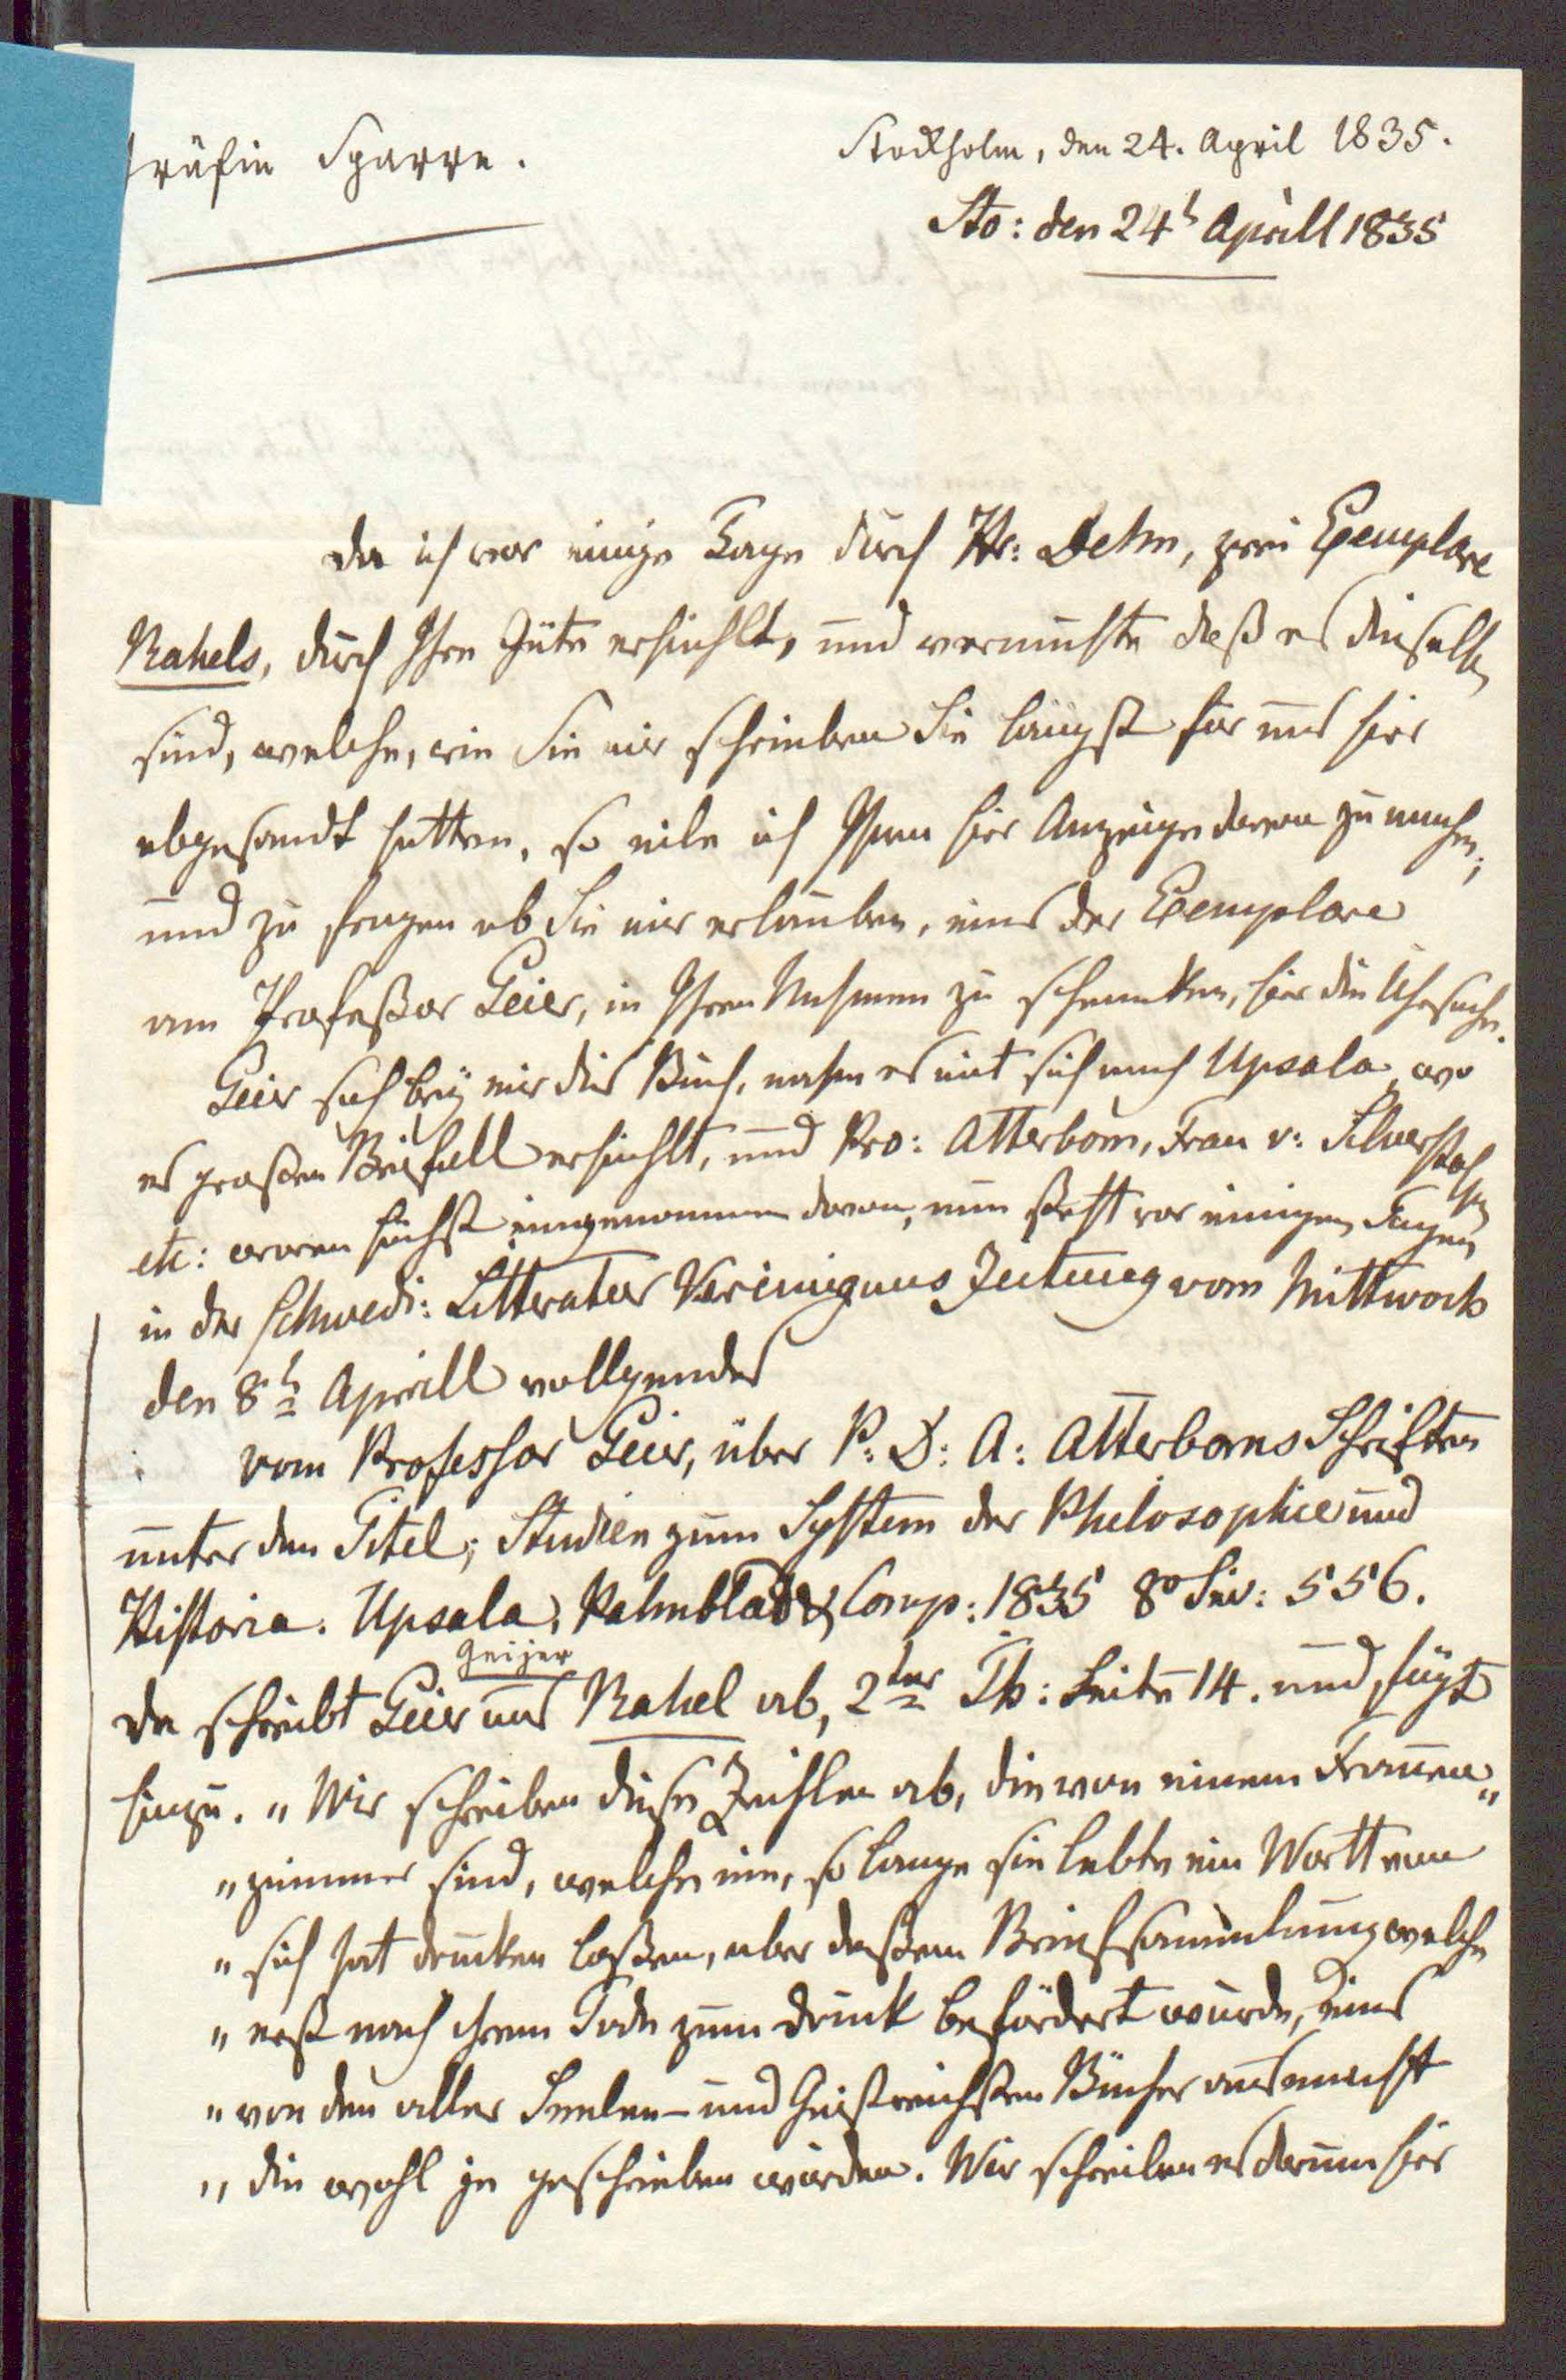 Gräfin Sparre.
Stockholm, den 24. April 1835.
Sto: den 24t Aprill 1835
Da ich vor einige Tage durch Hr: Dehn, zwei Exemplare
Rahels, durch Ihre Güte erhiehlt, und vermuthe daß es dieselben
sind, welche, wie Sie mir schrieben Sie längst für uns hier
abgesandt hatten, so eile ich Ihnen hier Anzeige davon zu machen;
und zu fragen ob Sie mir erlauben, eins der Exemplare
am Profeßor Geier, in Ihren Nahmen zu schenken, hier die Uhrsache.
Geier sah beÿ mir dies Buch, nahm es mit sich nach Upsala, wo
es großen Beifall erhiehlt, und Pro: Atterbom, Frau v: Silverstolpe
etc: waren höchst eingenommen davon, nun steht vor einigen Tagen
in der Schwedi: Litteratur Vereinigungs Zeitung vom Mittwoch
den 8t Aprill vollgendes
vom Professor Geier, über P: D: A: Atterboms Schriften
unter den Titel; Studien zum System der Philosophie und
Historia. Upsala, Palmblad & Comp: 1835 8o Sei: 556.
Geijer
da schreibt Geier aus Rahel ab, 2ter Th: Seite 14. und fügt
hinzu. "Wir schreiben diese Zeihlen ab, die von einem Frauen"
"zimmer sind, welche nie, so lange sie lebte ein Wortt von
"sich hat drucken laßen, aber deßen Briefsammlung welche
"erst nach ihrem Tode zum druck befördert wurde, eins
"von den aller Seelen- und Geistreichsten Bücher ausmacht
"die wohl je geschrieben würden. Wir schreiben es darum hier